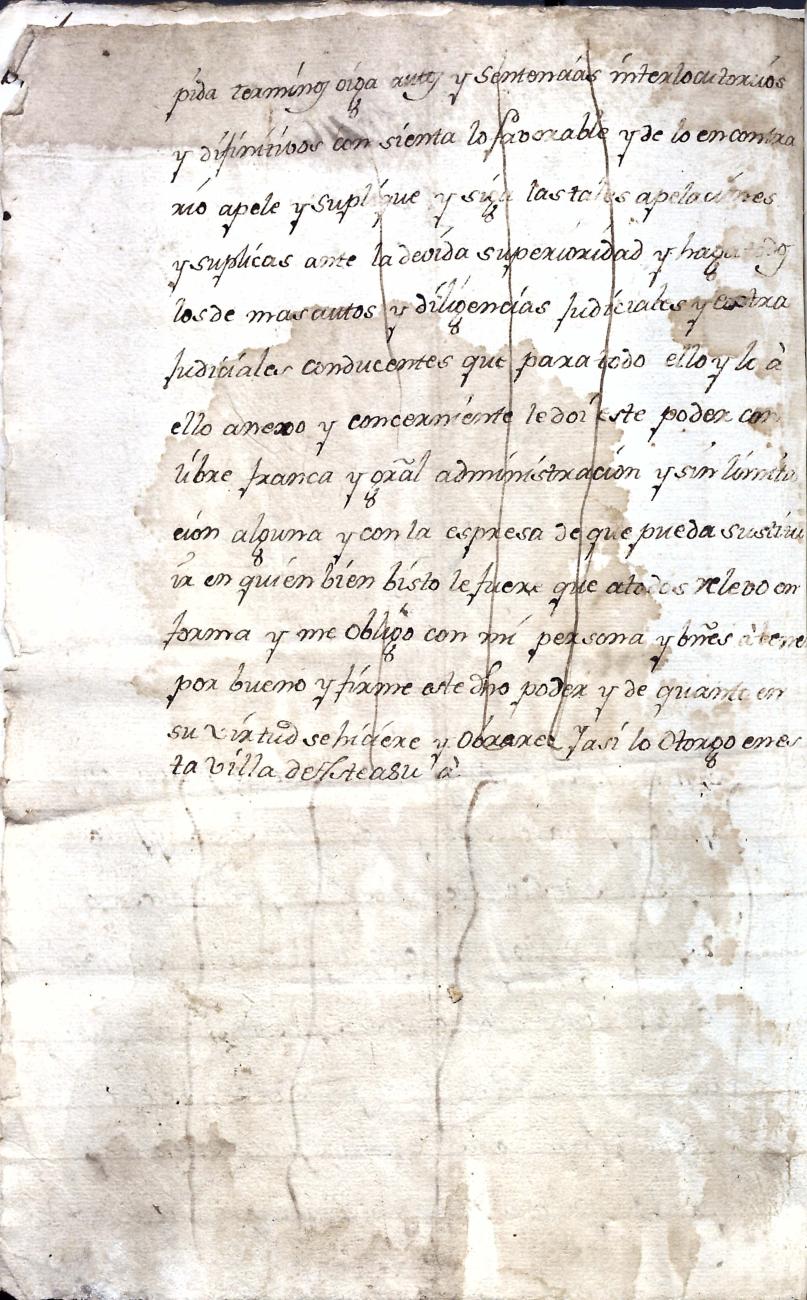 pida terminos oiga autos y sentencias interlocutorios
y difinitivos con sienta lo favorable y de lo encontra
rio apele y suplique y siga las tales apelaciones
y suplicas ante la devida superioridad y haga todos
los de mas autos y diligencias Judiciales y estra
Judiciales conducentes que para todo ello y lo à
ello anexo y concerniente le doi este poder con
libre franca y gral administracion y sin limita
cion alguna y con la espresa de que pueda sustitu
ir en quien bien bisto le fuere que a todos relevo en
forma y me obligo con mi persona y bñes à tener
por bueno y firme este dho poder y de quanto en
su virtud se hiciere y Obrare Jasi lo Otorgo en es
ta villa de Asteasu à